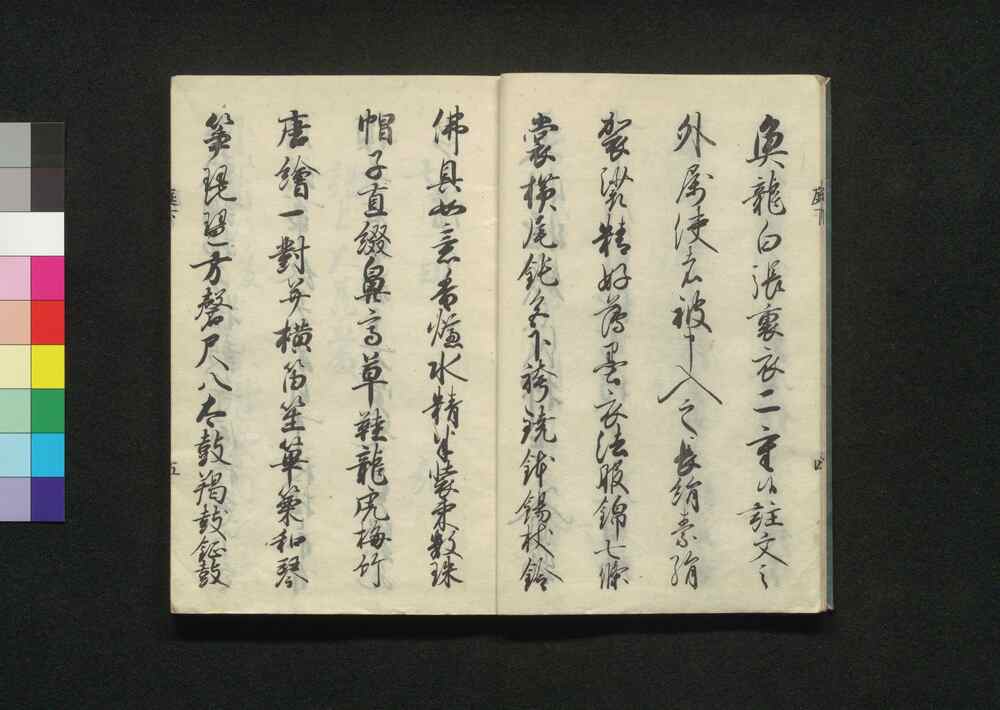 魚龍白張裏衣二重以註文之
外属使者被申入之長絹素絹
袈裟精好薄墨衣法服錦七條
裳横尾鈍色下袴鐃鉢錫杖鈴
四
佛具如意香爐水精半装束数珠
帽子直綴鼻高草鞋龍虎梅竹
唐繪一對并横笛笙篳篥和琴
箏琵琶方磬尺八太鼓羯鼓鉦鼓
五